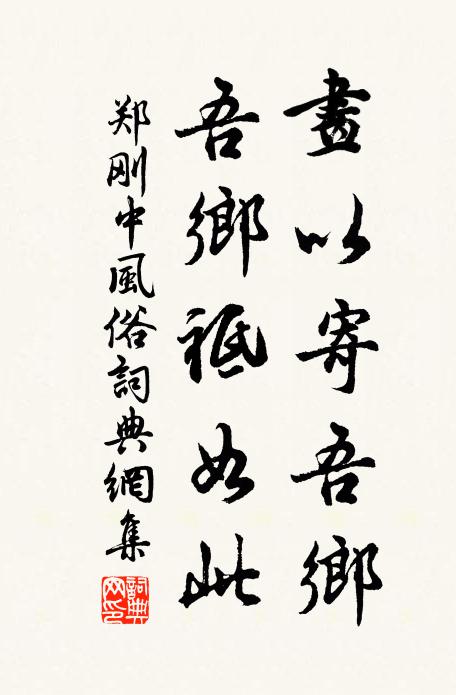 畫以寄吾鄉
吾鄉祗如此
郑刚中風俗詞典網集
詞典网印